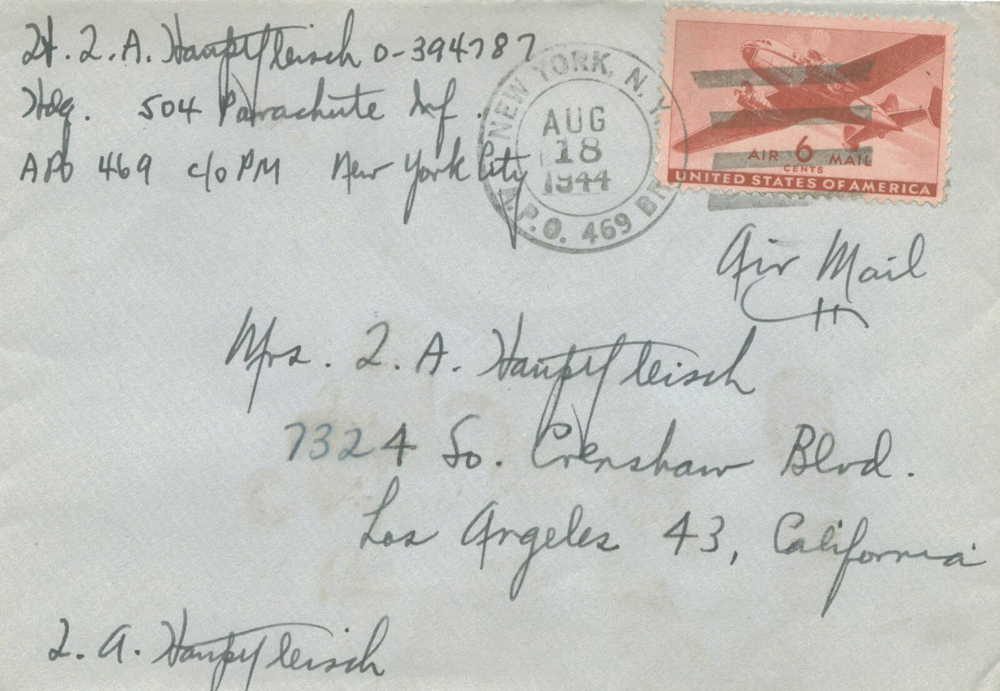 Lt. L. A. Hauptfleisch O-394787
Hdq. 504 Parachute Inf.
APO 469 c/o PM New York City
NEW YORK, N.Y.
AUG
18
1944
A.P.O. 469 BR
AIR 6 MAIL
CENTS
UNITED STATES OF AMERICA
Air Mail
Mrs. L. A. Hauptfleisch
7324 So. Crenshaw Blvd.
Los Angeles 43, California
L. A. Hauptfleisch